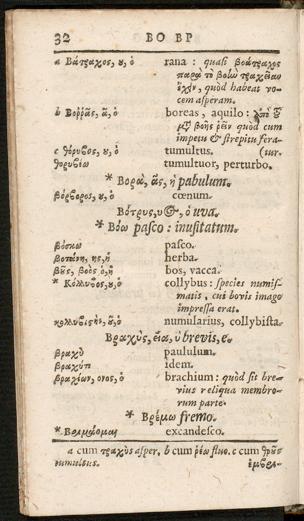 32 ΒΟ ΒΡ
a Βάτραχος, ου, ὁ rana : quasi βοάτραχος
παρὰ τὸ βοὼ τραχεῖαν
ἔχειν, quòd habeat vo-
cem asperam.
b Βοῤῥᾶς, ᾶ, ὁ boreas, aquilo: ἀπὸ τοῦ
μετὰ βοῆς ῥεῖν quòd cum
impetu & strepitu fera-
c θόρυβος, ου, ὁ tumultus. (tur.
θορυβέω tumultuor, perturbo.
* Βορὰ, ᾶς, ἡ pabulum.
βόρβορος, ου, ὁ cœnum.
Βότρυς, υος, ὁ uva.
* Βόω pasco : inusitatum.
βόσκω pasco.
βοτάνη, ης, ἡ herba.
βοῦς, βοὸς ὁ, ἡ bos, vacca.
* Κόλλυβος, ου, ὁ collybus : species numis-
matis, cui bovis imago
impressa erat.
κολλυβιστὴς, οῦ, ὁ numularius, collybista.
Βραχὺς, εῖα, ὺ brevis, e.
βραχὺ paululum.
βραχύτι idem.
βραχίων, ονος, ὁ brachium : quòd sit bre-
vius reliqua membro-
rum parte.
* Βρέμω fremo.
* excandesco.
a cum τραχὺς asper. b cum ῥέω fluo. c cum θροῦς
tumultus.